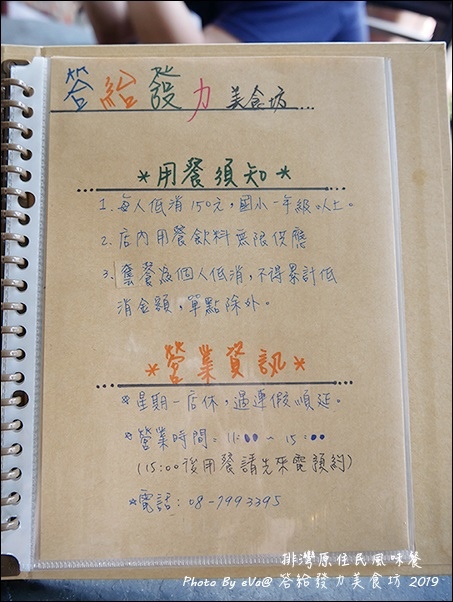 答給發力美食坊...
*用餐須知*
1. 每人低消150元,國小一年級以上。
2. 店內用餐飲料無限供應
3. 套餐為個人低消,不得累計低
消金額,單點除外。
*營業資訊*
*星期一店休,遇連假順延。
*營業時間:11:00~15:00
(15:00後用餐請先來電預約)
*電話:08-7993395
排灣原住民風味餐
Photo By eVa@ 答給發力美食坊 2019